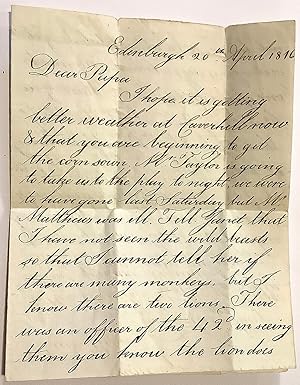 Edinburgh 20th April 1816
Dear Papa
I hope it is getting
better weather at Caverhill now
& that you are beginning to get
the corn sown. Mr Taylor is going
to take us to the play to night, we were
to have gone last Saturday but Mr
Matthews was ill. Tell Janet that
I have not seen the wild beasts
so that I cannot tell her if
there are many monkeys. but I
know there are two lions. There
was an officer of the 42d in seeing
them you know the lion does